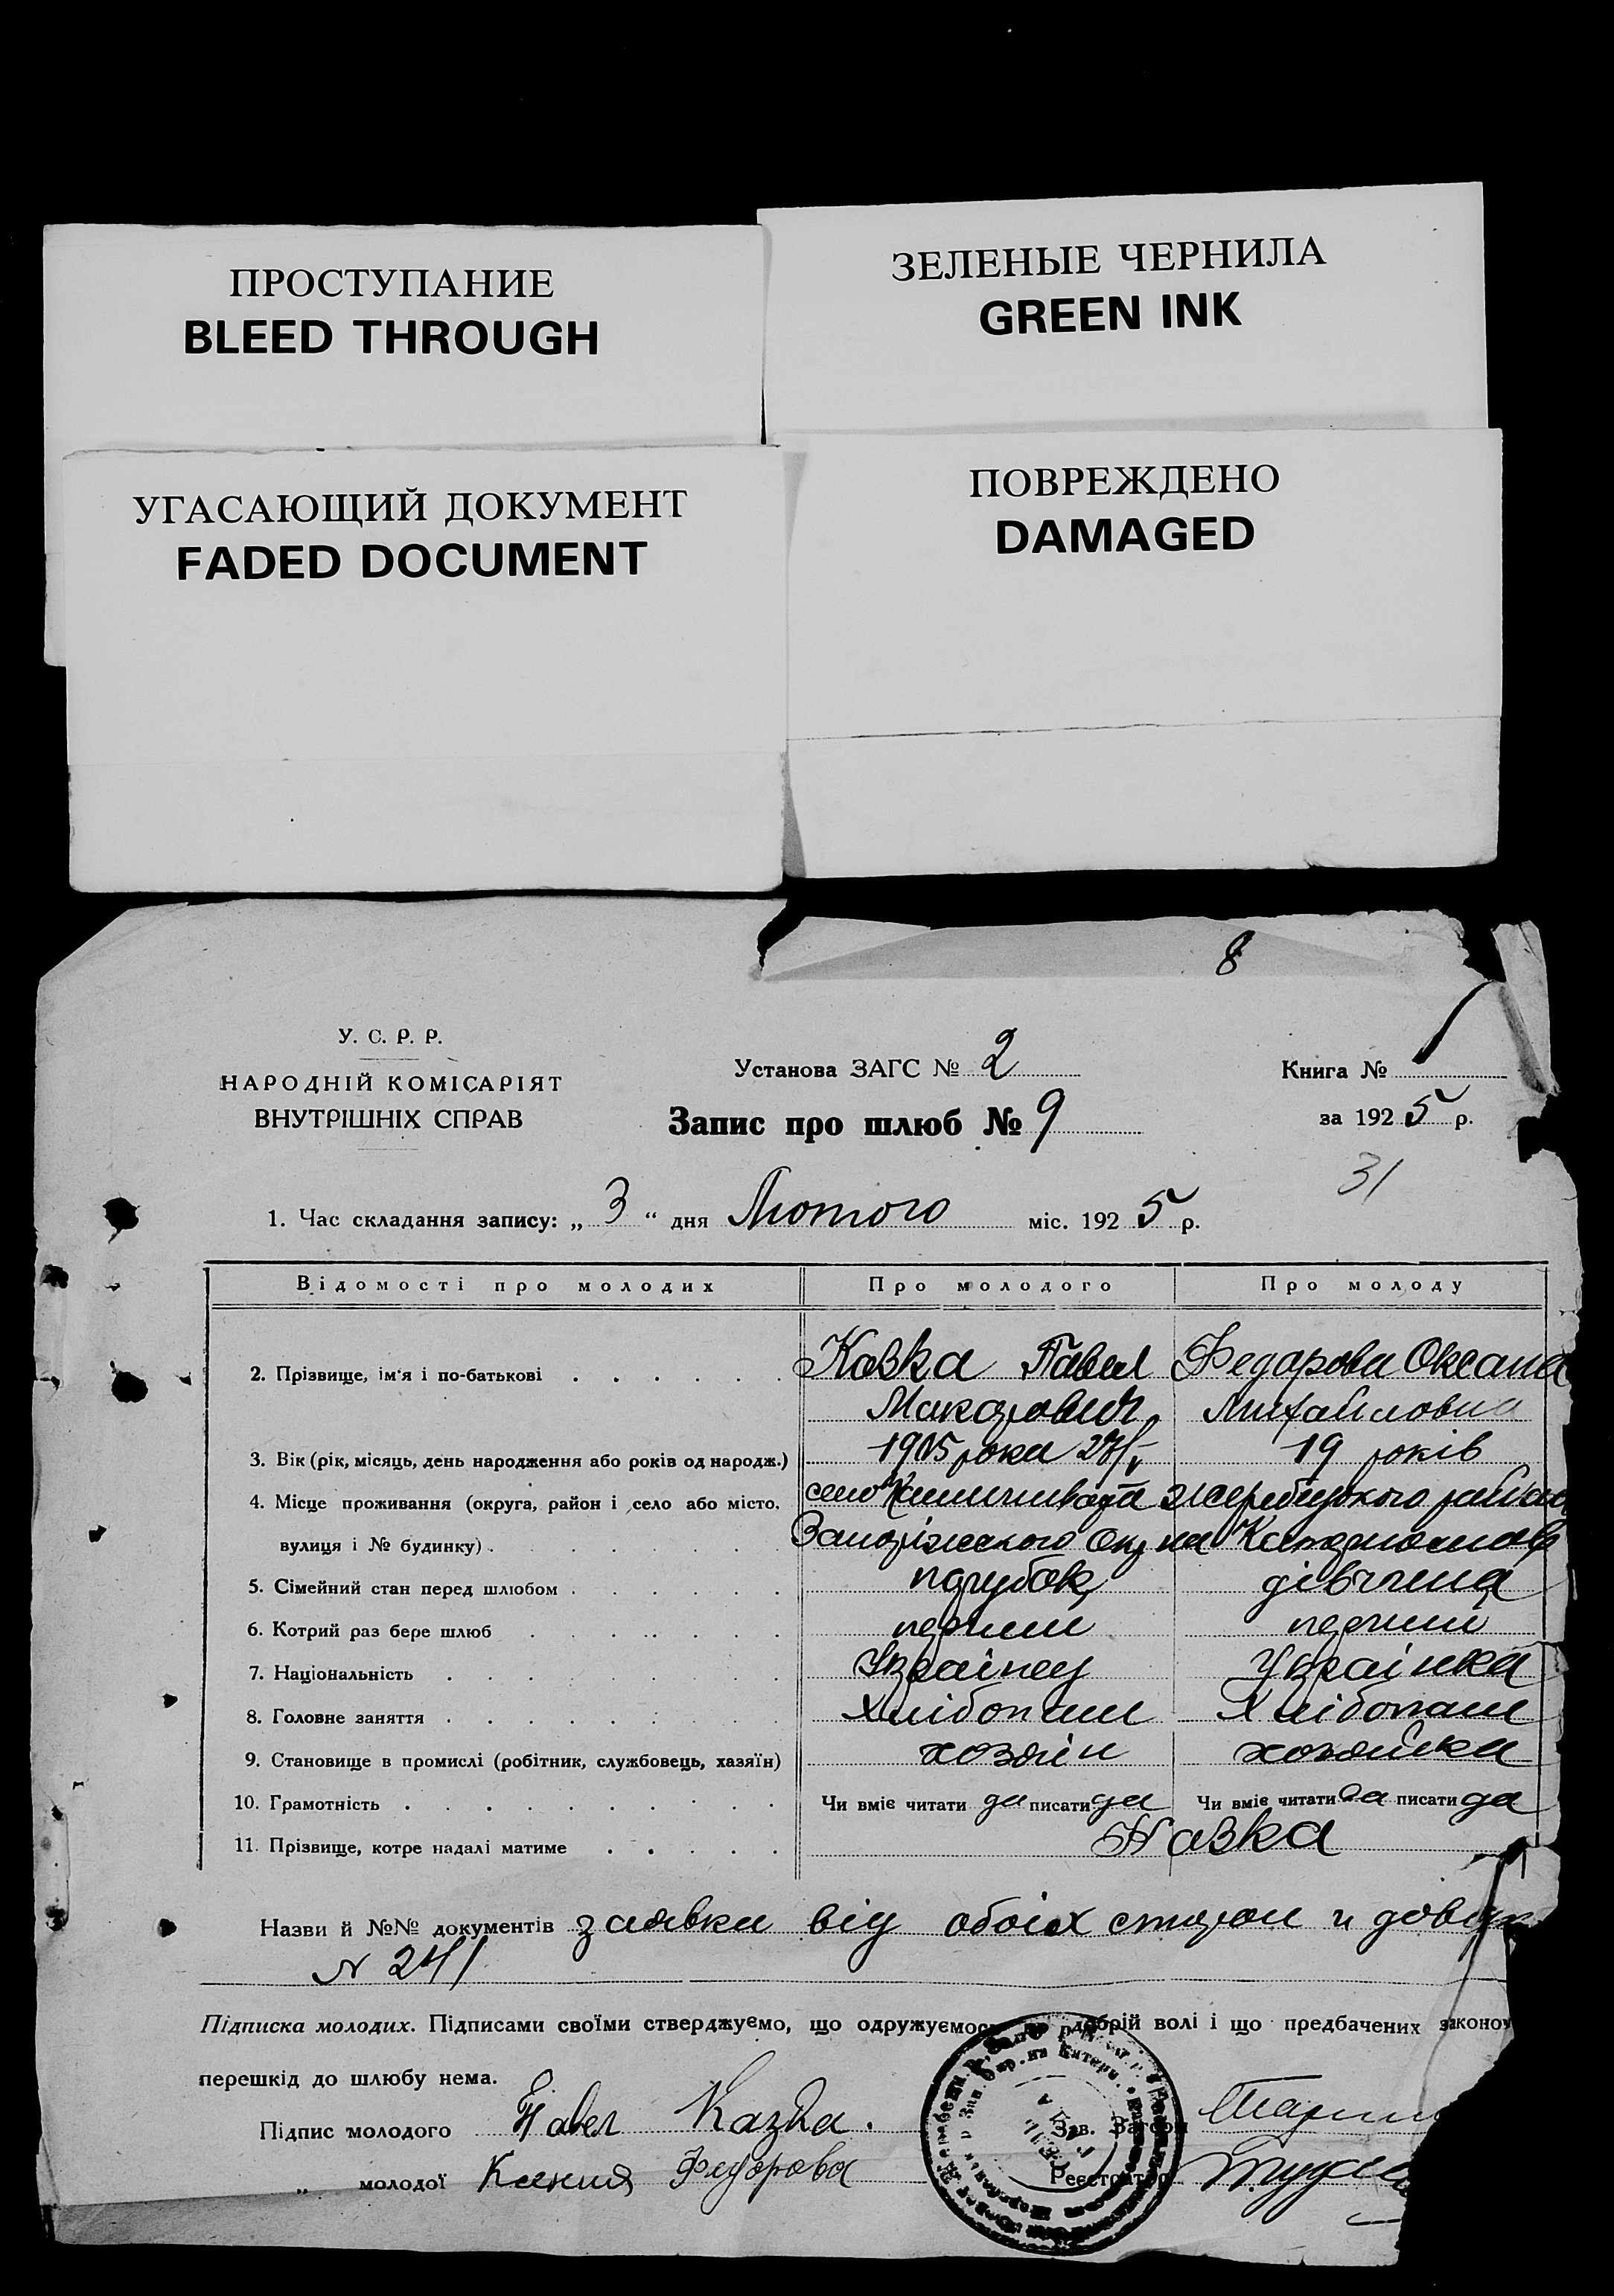 ПРОСТУПАНИЕ
BLEED THROUGH
ЗЕЛЕНЫЕ ЧЕРНИЛА
GREEN INK
УГАСАЮЩИЙ ДОКУМЕНТ
FADED DOCUMENT
ПОВРЕЖДЕНО
DAMAGED
8
У. С. Р. Р.
НАРОДНІЙ КОМІСАРІЯТ
ВНУТРІШНІХ СПРАВ
Установа ЗАГС № 2
Запис про шлюб № 9
Книга № 1
за 1925 р.
31
1. Час складання запису: „ 3 “ дня Лютого міс. 1925 р.
Відомості про молодих Про молодого Про молоду
2. Прізвище, ім'я і по-батькові Кавка Павел Федорова Оксана
Макарович Михайловна
3. Вік (рік, місяць, день народження або років од народж.) 1905 рока 19 років
4. Місце проживання (округа, район і село або місто, село жеребецького району
вулиця і № будинку) Запоріжського Окр на
5. Сімейний стан перед шлюбом парубок дівчина
6. Котрий раз бере шлюб перший перший
7. Національність Українец Українка
8. Головне заняття Хлібопаш Хлібопаш
9. Становище в промислі (робітник, службовець, хазяїн) хозяін хозяйка
10. Грамотність Чи вміє читати да писати да Чи вміє читати да писати да
11. Прізвище, котре надалі матиме Кавка
Назви й №№ документів заявки від обоіх сторон и довідк
№ 241
Підписка молодих. Підписами своїми стверджуємо, що одружуємось по добрій волі і що предбачених законо
перешкід до шлюбу нема.
Підпис молодого Павел Казка. Зав. Загсом
„ молодої Ксения Федорова Реєстратор